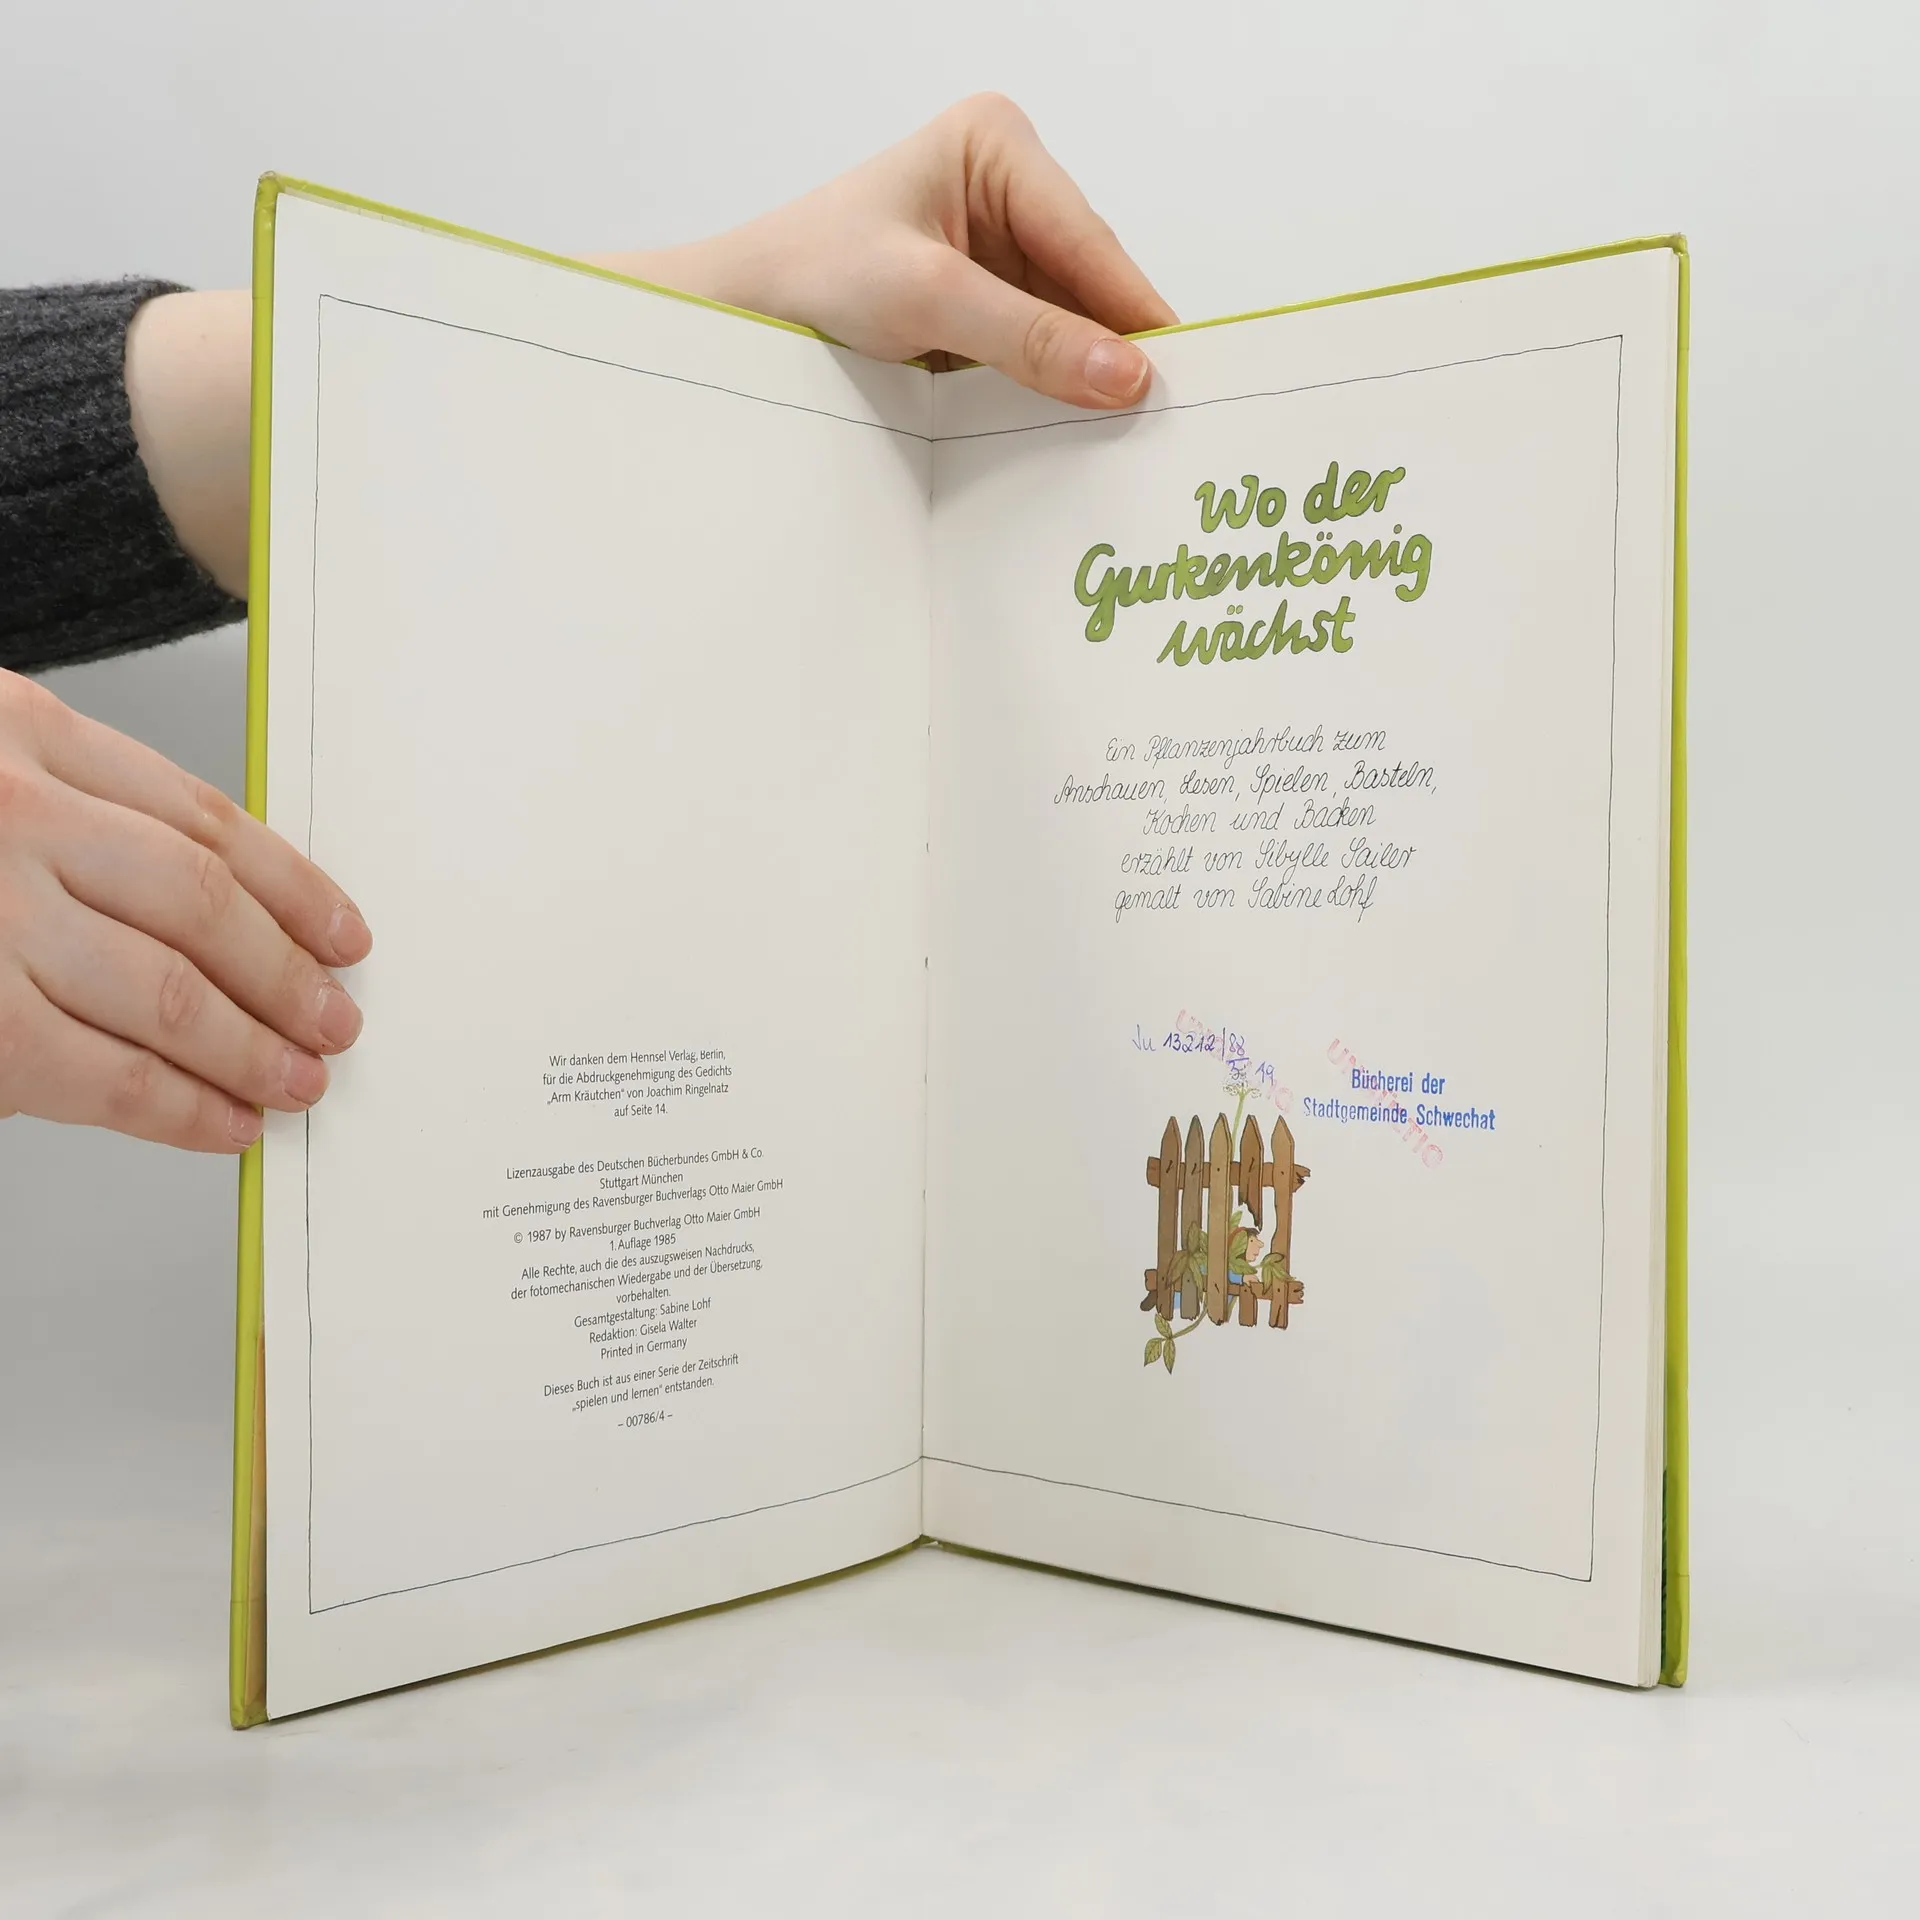 Wir danken dem Hennsel Verlag, Berlin,
für die Abdruckgenehmigung des Gedichts
„Arm Kräutchen" von Joachim Ringelnatz
auf Seite 14.
Lizenzausgabe des Deutschen Bücherbundes GmbH & Co.
Stuttgart München
mit Genehmigung des Ravensburger Buchverlags Otto Maier GmbH
© 1987 by Ravensburger Buchverlag Otto Maier GmbH
1. Auflage 1985
Alle Rechte, auch die des auszugsweisen Nachdrucks,
der fotomechanischen Wiedergabe und der Übersetzung,
vorbehalten.
Gesamtgestaltung: Sabine Lohf
Redaktion: Gisela Walter
Printed in Germany
Dieses Buch ist aus einer Serie der Zeitschrift
„spielen und lernen" entstanden.
– 00786/4 –
Wo der
Gurkenkönig
wächst
Ein Pflanzenjahrbuch zum
Anschauen, Lesen, Spielen, Basteln,
Kochen und Backen
erzählt von Sibylle Sailer
gemalt von Sabine Lohf
Ju 13212/88
19
Bücherei der
Stadtgemeinde Schwechat